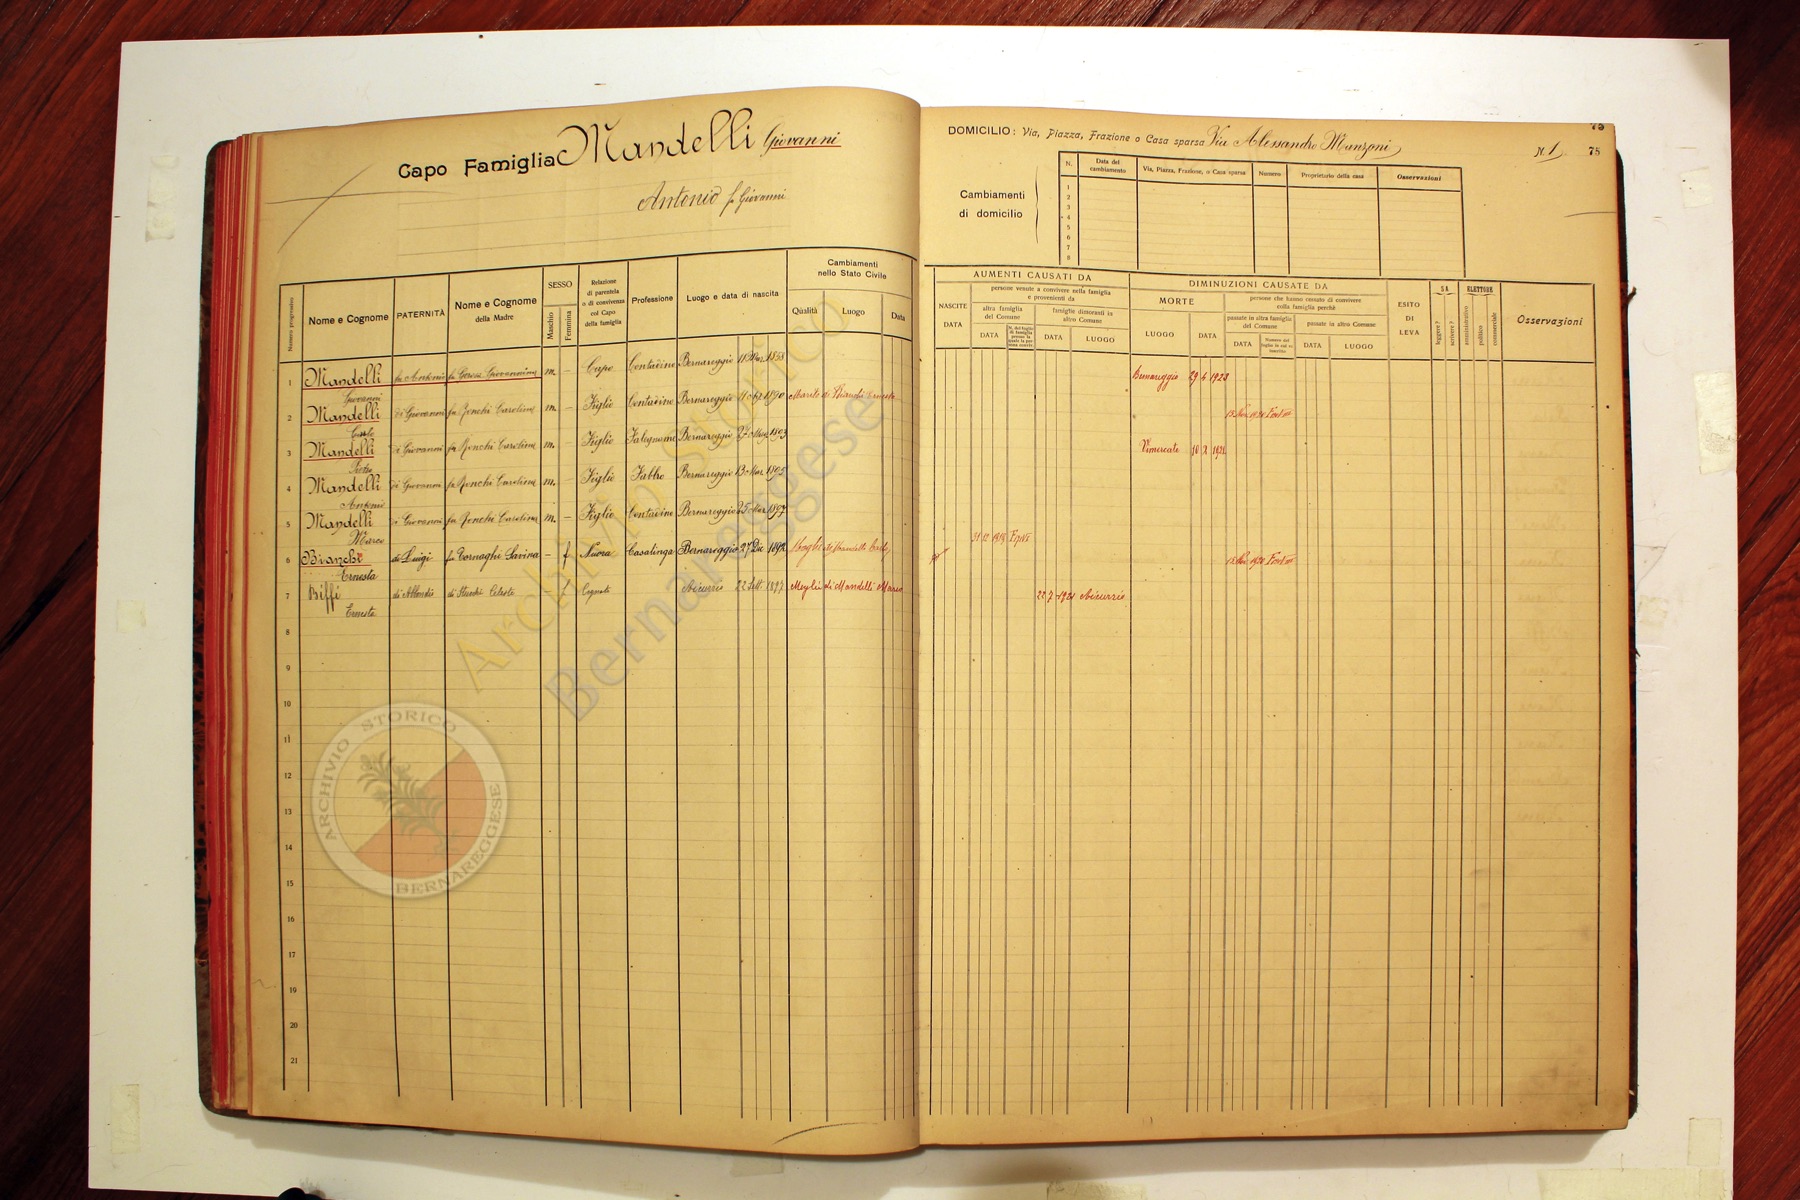 Capo Famiglia Mandelli Giovanni
Antonio fu Giovanni
DOMICILIO: Via, Piazza, Frazione o Casa sparsa Via Alessandro Manzoni
N. 1
75
75
Cambiamenti
di domicilio
N. Data del cambiamento Via, Piazza, Frazione, o Casa sparsa Numero Proprietario della casa Osservazioni
1
2
3
4
5
6
7
8
Numero progressivo
Nome e Cognome
PATERNITÀ
Nome e Cognome
della Madre
SESSO
Maschio
Femmina
Relazione
di parentela
o di convivenza
col Capo
della famiglia
Professione
Luogo e data di nascita
Cambiamenti
nello Stato Civile
Qualità Luogo Data
AUMENTI CAUSATI DA
NASCITE
DATA
persone venute a convivere nella famiglia
e provenienti da
altra famiglia
del Comune
DATA
famiglie dimoranti in
altro Comune
DATA LUOGO
DIMINUZIONI CAUSATE DA
MORTE
LUOGO DATA
persone che hanno cessato di convivere
colla famiglia perchè
passate in altra famiglia
del Comune
DATA
passate in altro Comune
DATA LUOGO
ESITO
DI
LEVA
SA
leggere?
scrivere?
ELETTORE
amministrativo
politico
commerciale
Osservazioni
1 Mandelli Giovanni fu Antonio fu Giovannina m. – Capo Contadino Bernareggio 1858 Bernareggio 29 1923
2 Mandelli Carlo di Giovanni fu Ronchi Carolina m. – Figlio Contadino Bernareggio 1890 Marito di Bianchi Ernesta
3 Mandelli Pietro di Giovanni fu Ronchi Carolina m. – Figlio Falegname Bernareggio 27 1893 Vimercate 10 X
4 Mandelli Antonio di Giovanni fu Ronchi Carolina m. – Figlio Fabbro Bernareggio 13 Mar. 1895
5 Mandelli Marco di Giovanni fu Ronchi Carolina m. – Figlio Contadino Bernareggio 25 Mar. 1897
6 Bianchi Ernesta di Luigi fu Tornaghi Savina – f Nuora Casalinga Bernareggio 27 Dic 1892 Moglie di Mandelli Carlo 31 12 1918
7 Biffi Ernesta di Celesta – f Cognata Aicurzio 22 Sett. 1897 Moglie di Mandelli Marco 22 7 1921 Aicurzio
8
9
10
11
12
13
14
15
16
17
18
19
20
21
Archivio Storico
Bernareggese
ARCHIVIO STORICO
BERNAREGGESE